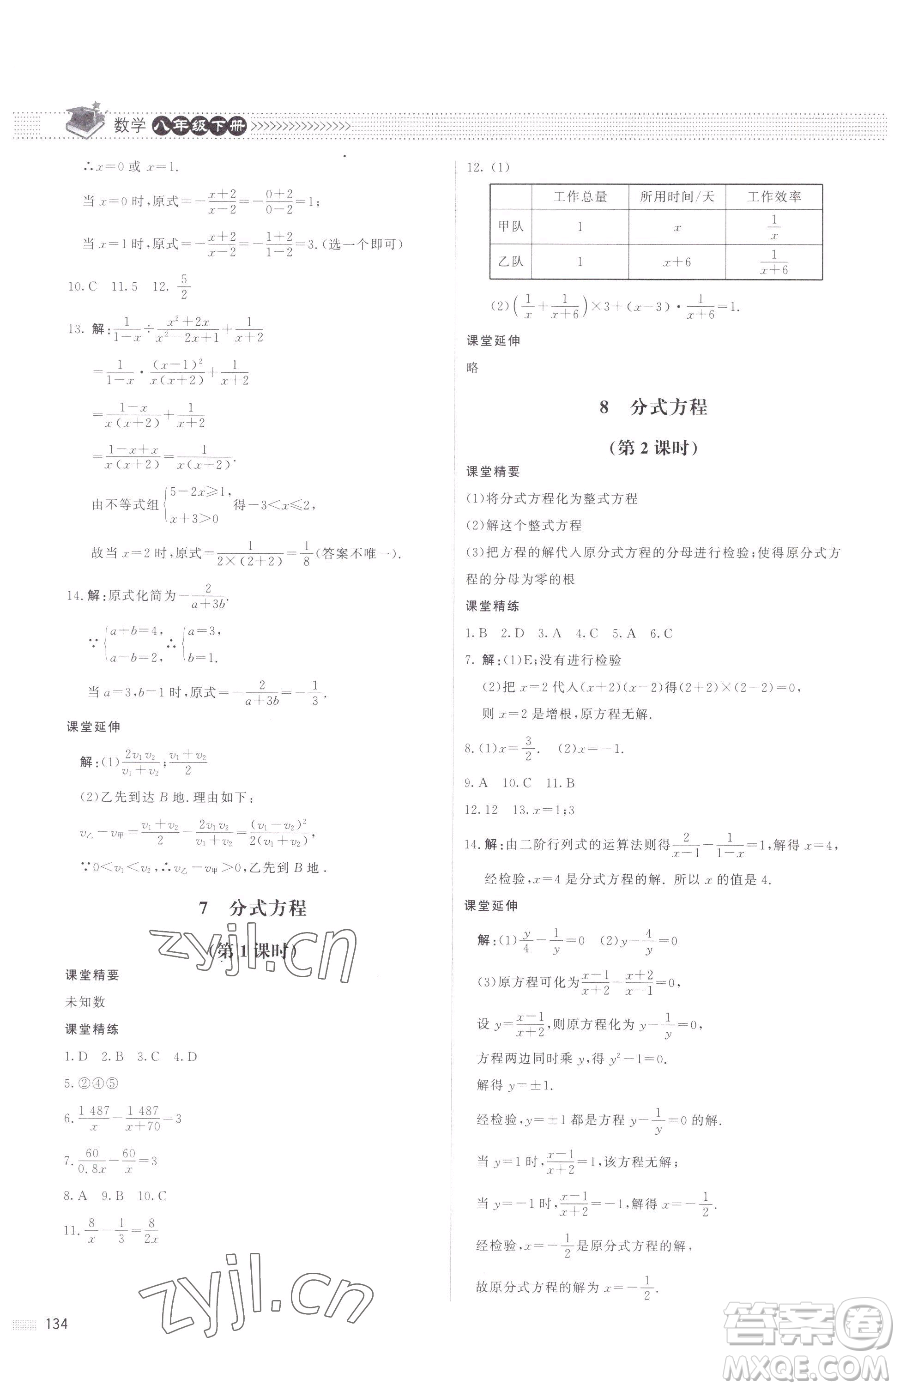 数学 八年级下册
∴x=0 或 x=1.
当 x=0 时,原式=-\frac{x+2}{x-2}=-\frac{0+2}{0-2}=1;
当 x=1 时,原式=-\frac{x+2}{x-2}=-\frac{1+2}{1-2}=3.(选一个即可)
10.C 11.5 12.\frac{5}{2}
13.解:\frac{1}{1-x}÷\frac{x²+2x}{x²-2x+1}+\frac{1}{x+2}
=\frac{1}{1-x}·\frac{(x-1)²}{x(x+2)}+\frac{1}{x+2}
=\frac{1-x}{x(x+2)}+\frac{1}{x+2}
=\frac{1-x+x}{x(x+2)}=\frac{1}{x(x+2)}.
由不等式组{5-2x≥1, x+3>0 得-3<x≤2,
故当 x=2 时,原式=\frac{1}{2×(2+2)}=\frac{1}{8}(答案不唯一).
14.解:原式化简为-\frac{2}{a+3b}.
∵{a+b=4, a-b=2, ∴{a=3, b=1,
当 a=3,b=1 时,原式=-\frac{2}{a+3b}=-\frac{1}{3}.
课堂延伸
解:(1)\frac{2v₁v₂}{v₁+v₂};\frac{v₁+v₂}{2}
(2)乙先到达 B 地.理由如下:
v乙-v甲=\frac{v₁+v₂}{2}-\frac{2v₁v₂}{v₁+v₂}=\frac{(v₁-v₂)²}{2(v₁+v₂)}.
∵0<v₁<v₂,∴v乙-v甲>0,乙先到 B 地.
7 分式方程
(第 1 课时)
课堂精要
未知数
课堂精练
1.D 2.B 3.C 4.D
5.②④⑤
6.\frac{1 487}{x}-\frac{1 487}{x+70}=3
7.\frac{60}{0.8x}-\frac{60}{x}=3
8.A 9.B 10.C
11.\frac{8}{x}-\frac{1}{3}=\frac{8}{2x}
134
12.(1)
工作总量 所用时间/天 工作效率
甲队 1 x \frac{1}{x}
乙队 1 x+6 \frac{1}{x+6}
(2)(\frac{1}{x}+\frac{1}{x+6})×3+(x-3)·\frac{1}{x+6}=1.
课堂延伸
略
8 分式方程
(第 2 课时)
课堂精要
(1)将分式方程化为整式方程
(2)解这个整式方程
(3)把方程的解代人原分式方程的分母进行检验;使得原分式方
程的分母为零的根
课堂精练
1.B 2.D 3.A 4.C 5.A 6.C
7.解:(1)E;没有进行检验
(2)把 x=2 代人(x+2)(x-2)得(2+2)×(2-2)=0,
则 x=2 是增根,原方程无解.
8.(1)x=\frac{3}{2}. (2)x=-1.
9.A 10.C 11.B
12.12 13.x=1;3
14.解:由二阶行列式的运算法则得\frac{2}{x-1}-\frac{1}{1-x}=1,解得 x=4,
经检验,x=4 是分式方程的解. 所以 x 的值是 4.
课堂延伸
解:(1)\frac{y}{4}-\frac{1}{y}=0 (2)y-\frac{4}{y}=0
(3)原方程可化为\frac{x-1}{x+2}-\frac{x+2}{x-1}=0,
设 y=\frac{x-1}{x+2},则原方程化为 y-\frac{1}{y}=0,
方程两边同时乘 y,得 y²-1=0,
解得 y=±1.
经检验,y=±1 都是方程 y-\frac{1}{y}=0 的解.
当 y=1 时,\frac{x-1}{x+2}=1,该方程无解;
当 y=-1 时,\frac{x-1}{x+2}=-1,解得 x=-\frac{1}{2}.
经检验,x=-\frac{1}{2}是原分式方程的解,
故原分式方程的解为 x=-\frac{1}{2}.
zyjl.cn
zyjl.cn
答案圈
MXQE.COM